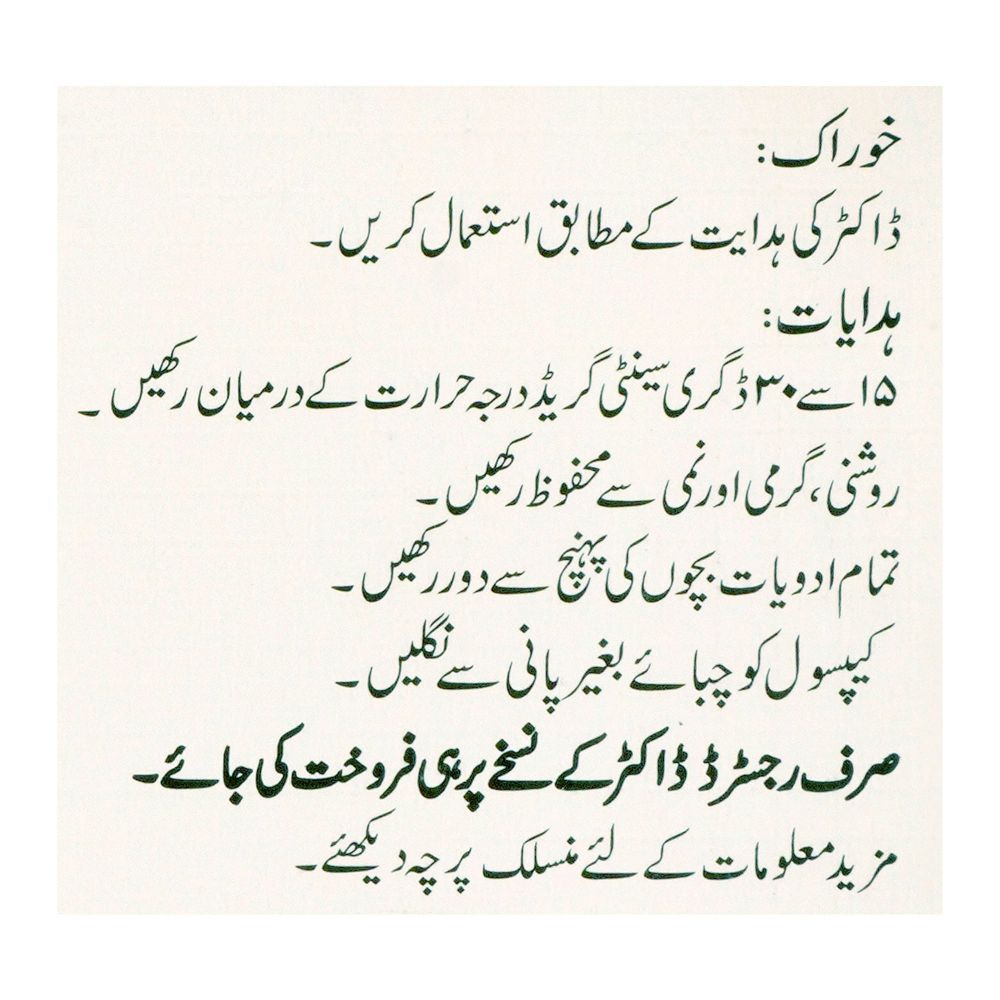 خوراک:
ڈاکٹر کی ہدایت کے مطابق استعمال کریں۔
ہدایات:
۱۵ سے ۳۰ ڈگری سینٹی گریڈ درجہ حرارت کے درمیان رکھیں۔
روشنی، گرمی اور نمی سے محفوظ رکھیں۔
تمام ادویات بچوں کی پہنچ سے دور رکھیں۔
کیپسول کو چبائے بغیر پانی سے نگلیں۔
صرف رجسٹرڈ ڈاکٹر کے نسخے پر ہی فروخت کی جائے۔
مزید معلومات کے لئے منسلک پرچہ دیکھئے۔